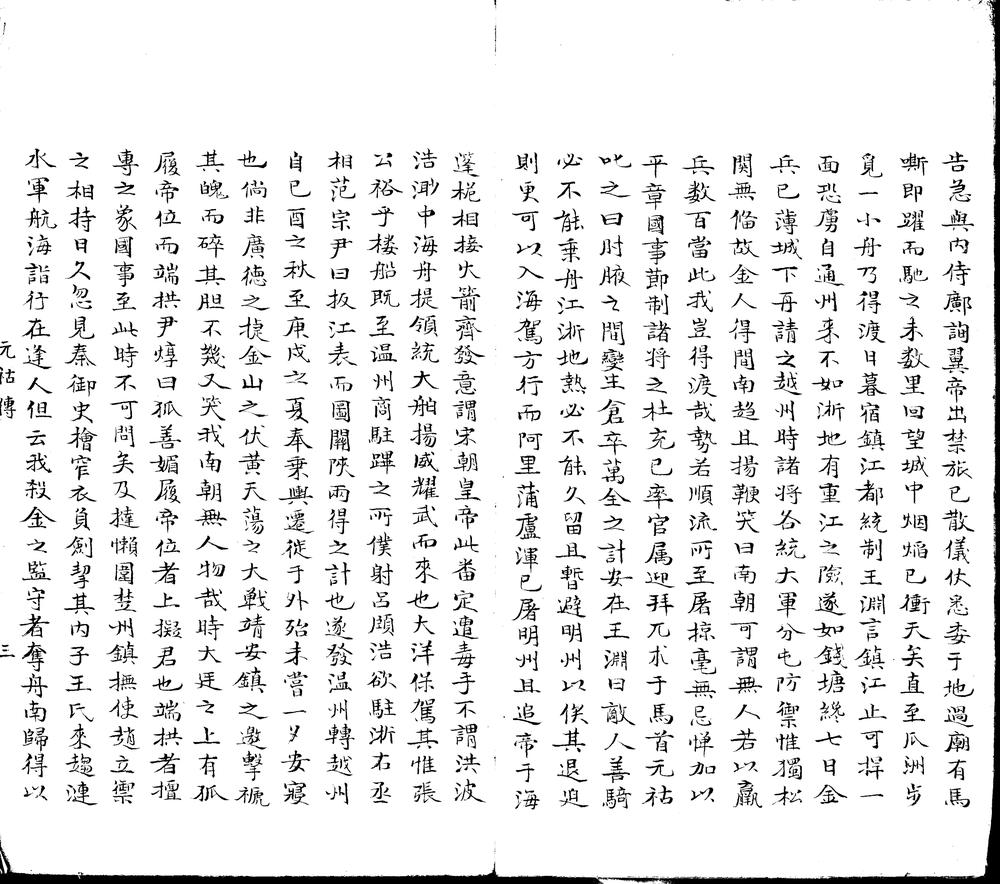 告急與内侍鄺詢翼帝出禁旅已散儀伏悉委于地過廟有馬
嘶即躍而馳之未数里回望城中烟焰已衝天矣直至瓜洲步
覓一小舟乃得渡日暮宿鎮江都統制王淵言鎮江止可捍一
面恐虜自通州来不如浙地有重江之險遂如錢塘終七日金
兵已薄城下再請之越州時諸将各統大軍分屯防禦惟獨松
関無俻故金人得間南趋且揚鞭笑曰南朝可謂無人若以羸
兵数百當此我豈得渡哉勢若順流所至屠掠毫無忌惮加以
平章國事節制諸将之杜充已率官属迎拜兀朮于馬首元祐
叱之曰肘腋之間變生倉卒萬全之計安在王淵曰敵人善騎
必不能乗舟江浙地熱必不能久留且暫避明州以俟其退追
則更可以入海駕方行而阿里蒲盧渾已屠明州且追帝于海
蓬桅相接火箭齊發意謂宋朝皇帝此番定遭毒手不謂洪波
浩渺中海舟提領統大舶揚威耀武而來也大洋保駕其惟張
公裕乎楼船既至温州商駐蹕之所僕射呂頤浩欲駐浙右丞
相范宗尹曰扳江表而圖關陜兩得之計也遂發温州轉越州
自己酉之秋至庚戍之夏奉乗輿遷徙于外殆未嘗一夕安寢
也倘非廣德之捷金山之伏黄天蕩之大戰靖安鎮之邀擊褫
其魄而碎其胆不幾又笑我南朝無人物哉時大廷之上有狐
履帝位而端拱尹焞曰狐善媚履帝位者上擬君也端拱者擅
專之象國事至此時不可問矣及撻懶圍楚州鎮撫使趙立禦
之相持日久忽見秦御史檜窄衣負劍挈其内子王氏來趨漣
水軍航海詣行在逢人但云我殺金之監守者奪舟南歸得以
元祐傳
三